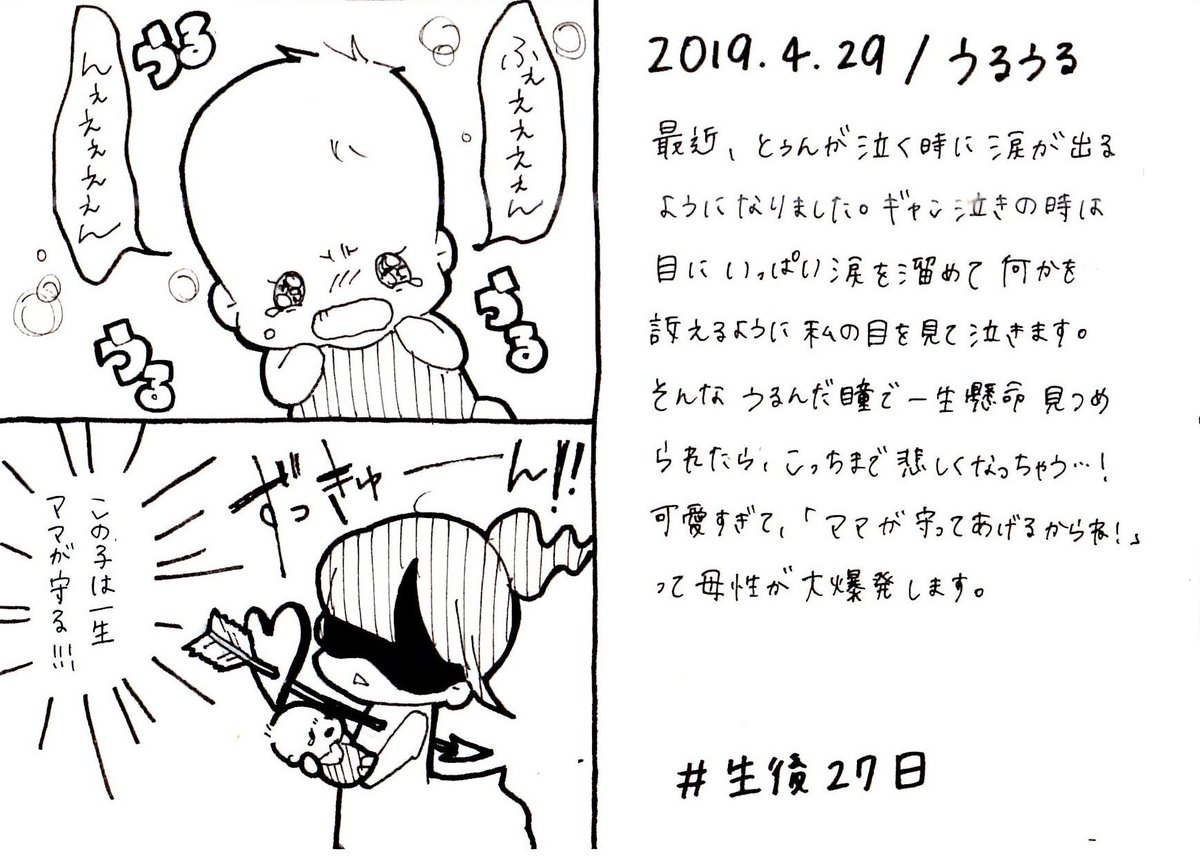 ふぇぇぇぇぇん
んぇぇぇぇぇん
うる
うる
うる
ずっきゅーん!!
この子は一生
ママが守る!!!
2019.4.29/うるうる
最近、とぅんが泣く時に涙が出る
ようになりました。ギャン泣きの時は
目にいっぱい涙を溜めて何かを
訴えるように私の目を見て泣きます。
そんなうるんだ瞳で一生懸命見つめ
られたら、こっちまで悲しくなっちゃう…!
可愛すぎて、「ママが守ってあげるからね!」
って母性が大爆発します。
#生後27日